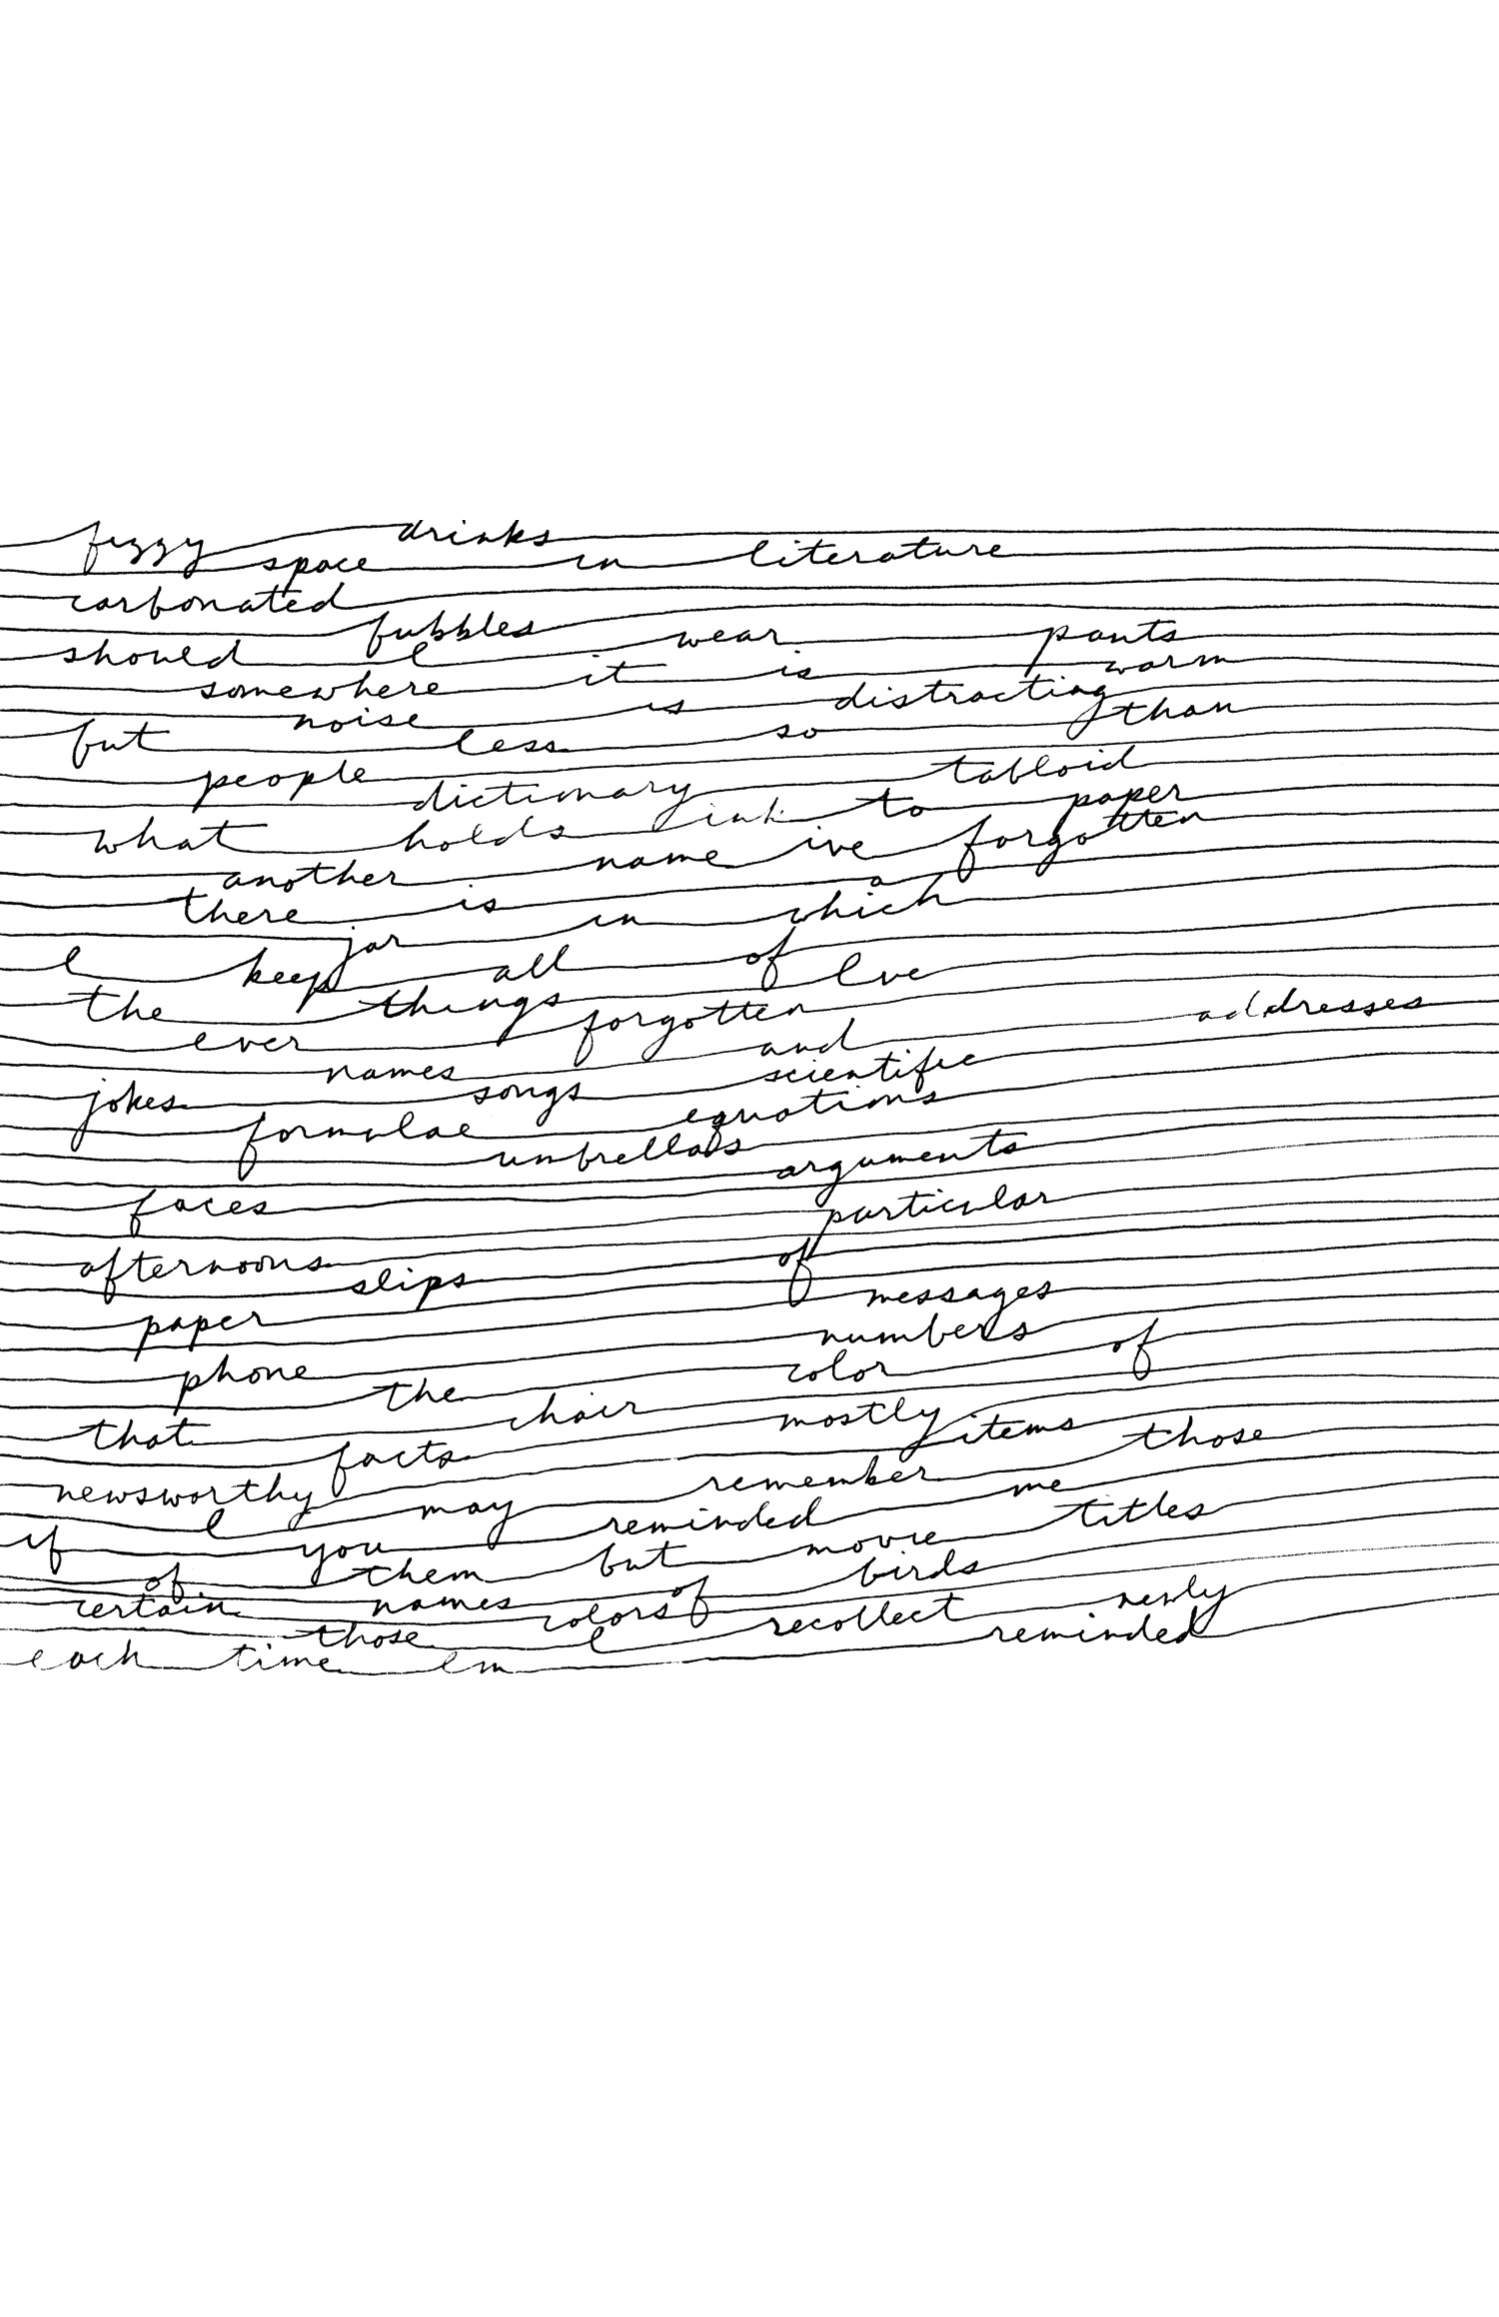 fizzy drinks
space in literature
carbonated
bubbles wear pants
should I
somewhere it is warm
noise is distracting
but less so than
people
dictionary tabloid
what holds ink to paper
another name ive forgotten
there is a
jar in which
I keep all of
the things Ive
ever forgotten
addresses
names and
jokes songs scientific
formulae equations
umbrellas
arguments
faces
particular
afternoons of
slips
paper messages
numbers
phone
the color of
that chair
facts mostly items
newsworthy
I may remember those
if you reminded me
of them but movie titles
certain names of birds
those colors
I recollect newly
each time Im reminded